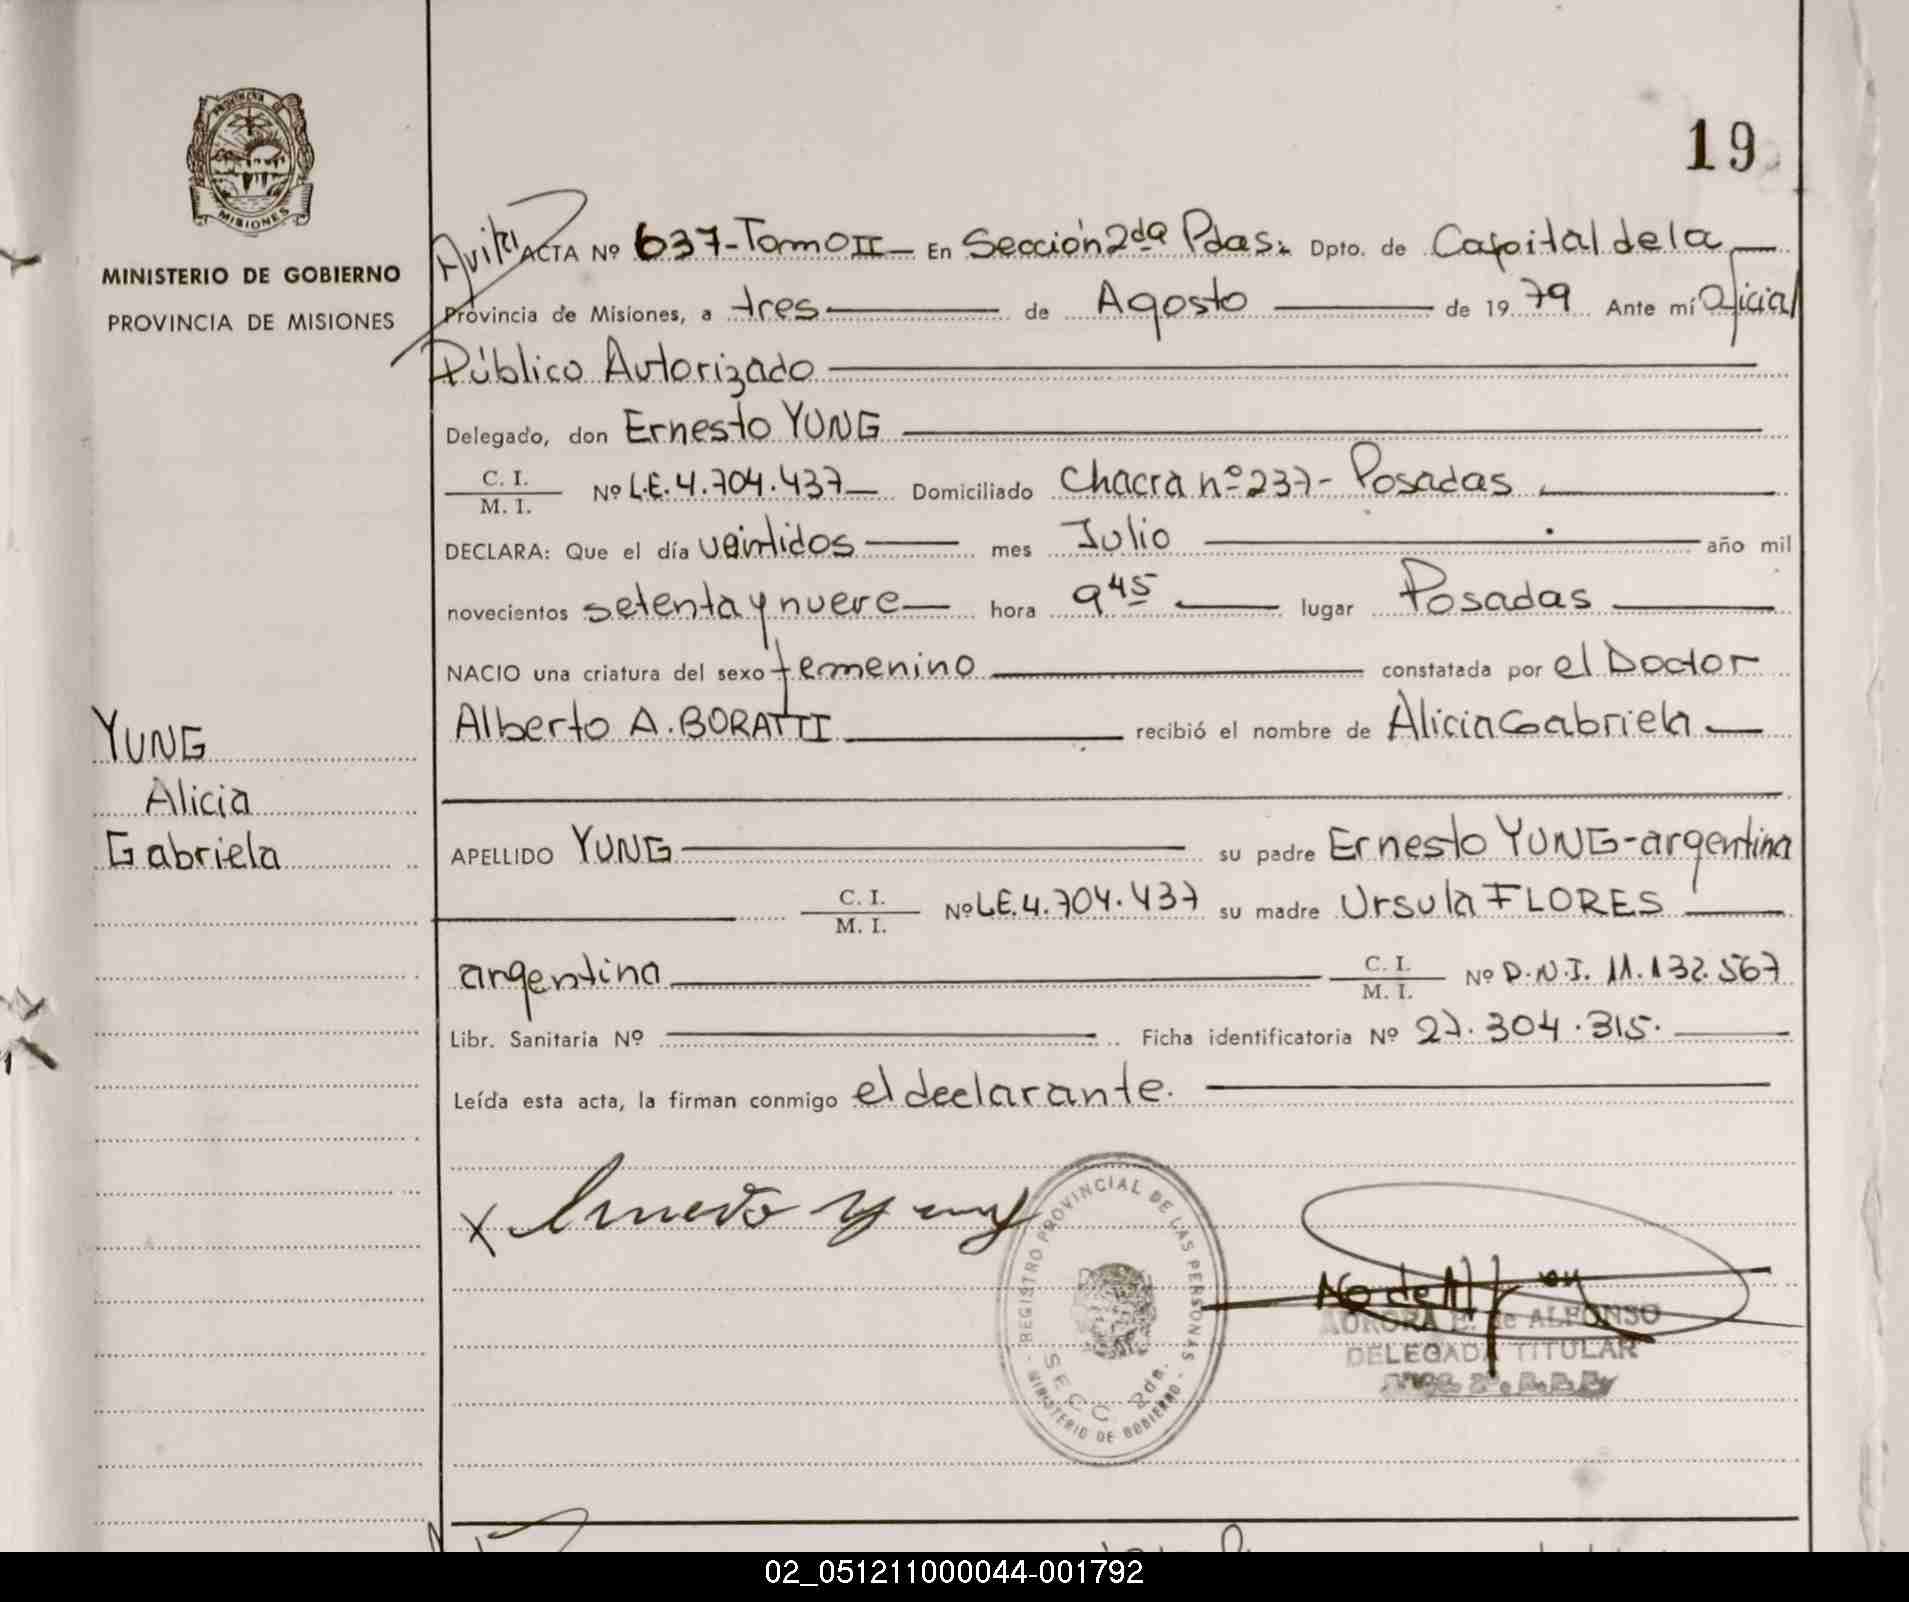 MISIONES
MINISTERIO DE GOBIERNO
PROVINCIA DE MISIONES
YUNG
Alicia
Gabriela
19
ACTA Nº 637-Tomo II- En Sección 2da Pdas. Dpto. de Capital de la
Provincia de Misiones, a tres de Agosto de 1979 Ante mí Oficial
Público Autorizado
Delegado, don Ernesto YUNG
C. I.
M. I. Nº L.E. 4.704.437 Domiciliado Chacra nº 237- Posadas
DECLARA: Que el día veintidos mes Julio año mil
novecientos setenta y nueve hora 9 45 lugar Posadas
NACIO una criatura del sexo femenino constatada por el Doctor
Alberto A. BORATTI recibió el nombre de Alicia Gabriela
APELLIDO YUNG su padre Ernesto YUNG-argentina
C. I.
M. I. Nº L.E. 4.704.437 su madre Ursula FLORES
argentina C. I.
M. I. Nº D.N.I. 11.132.567
Libr. Sanitaria Nº Ficha identificatoria Nº 27.304.315.
Leída esta acta, la firman conmigo el declarante.
X Ernesto Yung
REGISTRO PROVINCIAL DE LAS PERSONAS
MINISTERIO DE GOBIERNO
SECC 2da.
AURORA E. de ALFONSO
DELEGADA TITULAR
02_051211000044-001792